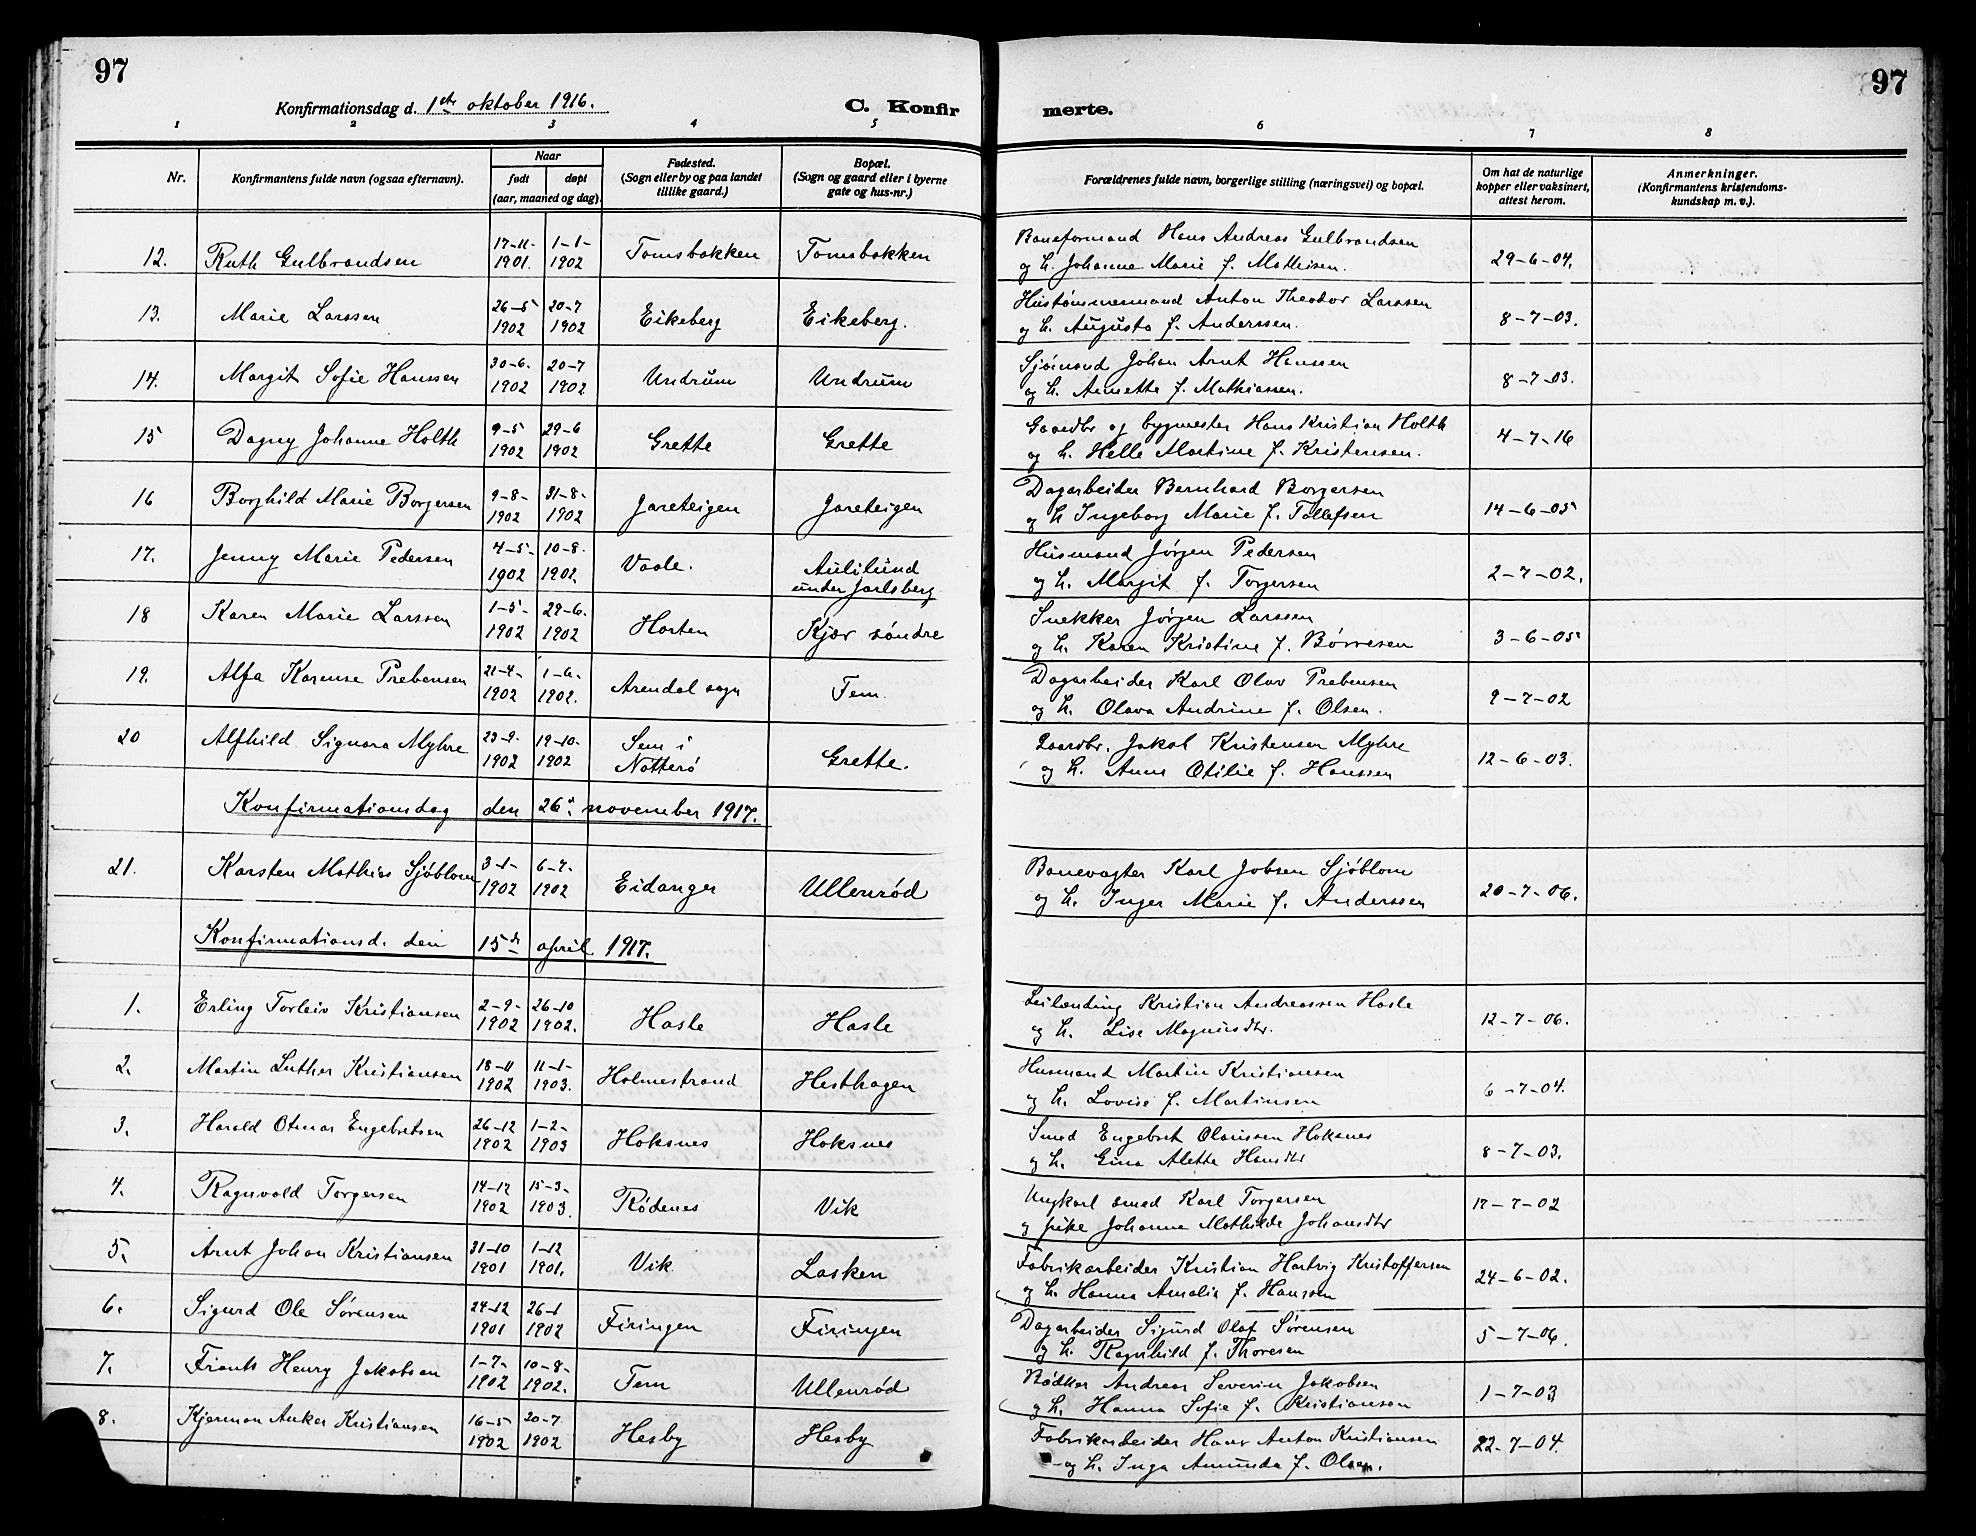 97
97
Konfirmationsdag d. 1ste oktober 1916.
C. Konfir
merte.
1 2 3 4 5 6 7 8
Nr.
Konfirmantens fulde navn (ogsaa efternavn).
Naar
født døpt
(aar, maaned og dag).
Fødested.
(Sogn eller by og paa landet
tillike gaard.)
Bopæl.
(Sogn og gaard eller i byerne
gate og hus-nr.)
Forældrenes fulde navn, borgerlige stilling (næringsvei) og bopæl.
Om hat de naturlige
kopper eller vaksinert,
attest herom.
Anmerkninger.
(Konfirmantens kristendoms-
kundskap m. v.).
12. Ruth Gulbrandsen 17-11-1901. 1-1-1902 Tomsbakken Tomsbakken Baneformand Hans Andreas Gulbrandsen
og h. Johanne Marie f. Mathisen. 29-6-04.
13. Marie Larssen 26-5 1902 20-7 1902 Eikeberg Eikeberg. Hustømmermand Anton Theodor Larssen
og h. Augusta f. Anderssen. 8-7-03.
14. Margit Sofie Hanssen 30-6. 1902 20-7 1902 Undrum Undrum Sjømand Johan Arnt Hanssen
og h. Annette f. Mathiassen. 8-7-03.
15 Dagny Johanne Holth 9-5 1902 29-6 1902 Grette Grette Gaardbr og bygmester Hans Kristian Holth
og h. Helle Martine f. Kristensen. 4-7-16
16 Borghild Marie Borgersen 9-8-1902 31-8-1902 Jareteigen Jareteigen Dagarbeider Bernhard Borgersen
og h Ingeborg Marie f. Tollefsen 14-6-05
17. Jenny Marie Pedersen 4-5-1902 10-8-1902. Vaale. Aulilund
under Jarlsberg Husmand Jørgen Pedersen
og h. Margit f. Torgersen 2-7-02.
18 Karen Marie Larssen 1-5-1902 29-6. 1902 Horten Kjær søndre Snekker Jørgen Larssen
og h. Karen Kristine f. Børresen 3-6-05
19. Alfa Karense Prebensen 21-4-1902 1-6-1902. Arendal sogn Tem. Dagarbeider Karl Olav Prebensen
og h. Olava Andrine f. Olsen. 9-7-02
20 Alfhild Signora Myhre 23-9-1902 19-10-1902 Sem i
Nøtterø Grette. Gaardbr. Jakob Kristensen Myhre
og h. Anna Otilie f. Hanssen 12-6-03.
Konfirmationsdag den 26de november 1917.
21. Karsten Mathias Sjøblom 3-1-1902 6-7-1902 Eidanger Ullenrød Banevagter Karl Jobsen Sjøblom
og h. Inger Marie f. Anderssen 20-7-06.
Konfirmationsd. den 15de april 1917.
1. Erling Torleiv Kristiansen 2-9-1902 26-10 1902. Hasle Hasle Leilænding Kristian Andreassen Hasle
og h. Lise Magnusdtr. 12-7-06.
2. Martin Luther Kristiansen 18-11 1902 11-1-1903. Holmestrand Hesthagen Husmand Martin Kristiansen
og h. Lovise f. Martinsen 6-7-04.
3. Harald Otmar Engebretsen 26-12 1902 1-2-1903 Hoksnes Hoksnes Smed Engebret Olaussen Hoksnes
og h. Gina Alette Hansdtr 8-7-03.
4. Ragnvald Torgersen 14-12 1902 15-3-1903. Rødenes Vik Ungkarl smed Karl Torgersen
og pike Johanne Mathilde Johansdtr 17-7-02
5. Arnt Johan Kristiansen 31-10 1901 1-12 1901. Vik Lasken Fabrikarbeider Kristian Hartvig Kristoffersen
og h. Hanna Amalie f. Hanssen 24-6-02.
6. Sigurd Ole Sørensen 24-12 1901 26-1 1902 Firingen Firingen Dagarbeider Sigurd Olaf Sørensen
og h. Ragnhild f. Thoresen 5-7-06.
7. Frants Henry Jakobsen 1-7-1902 10-8-1902. Tem Ullenrød Bødker Andreas Severin Jakobsen
og h. Hanna Sofie f. Kristiansen 1-7-03
8. Kjerman Anker Kristiansen 16-5 1902 20-7 1902 Hesby Hesby Fabrikarbeider Hans Anton Kristiansen
og h. Inga Amunda f. Olsen. 22-7-04.